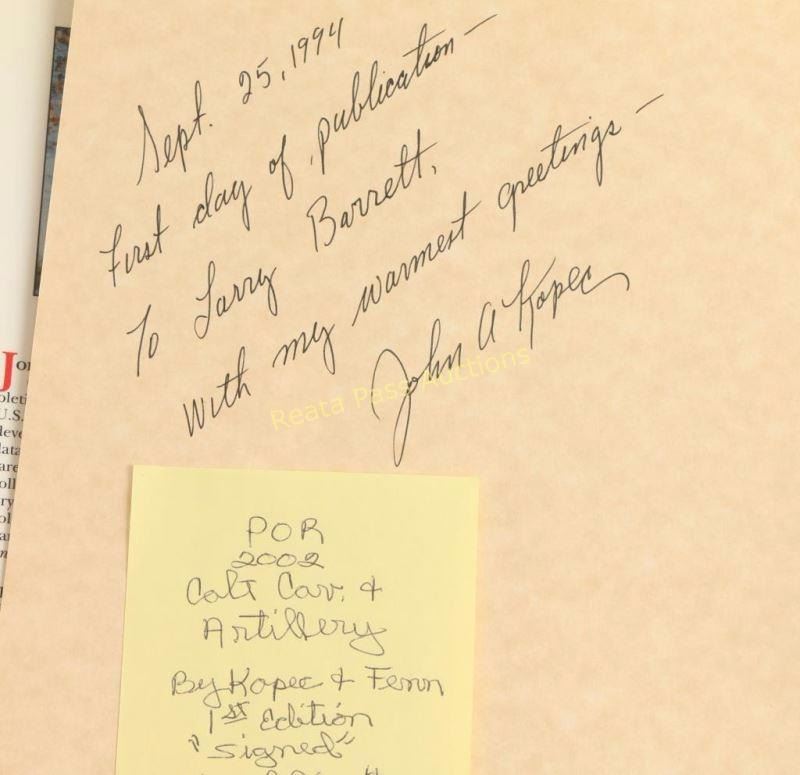 Sept. 25, 1994
First day of publication —
To Larry Barrett,
With my warmest greetings —
John A Kopec
Reata Pass Auctions
POR
2002
Colt Cav. &
Artillery
By Kopec & Fenn
1st Edition
"Signed"
U.S.